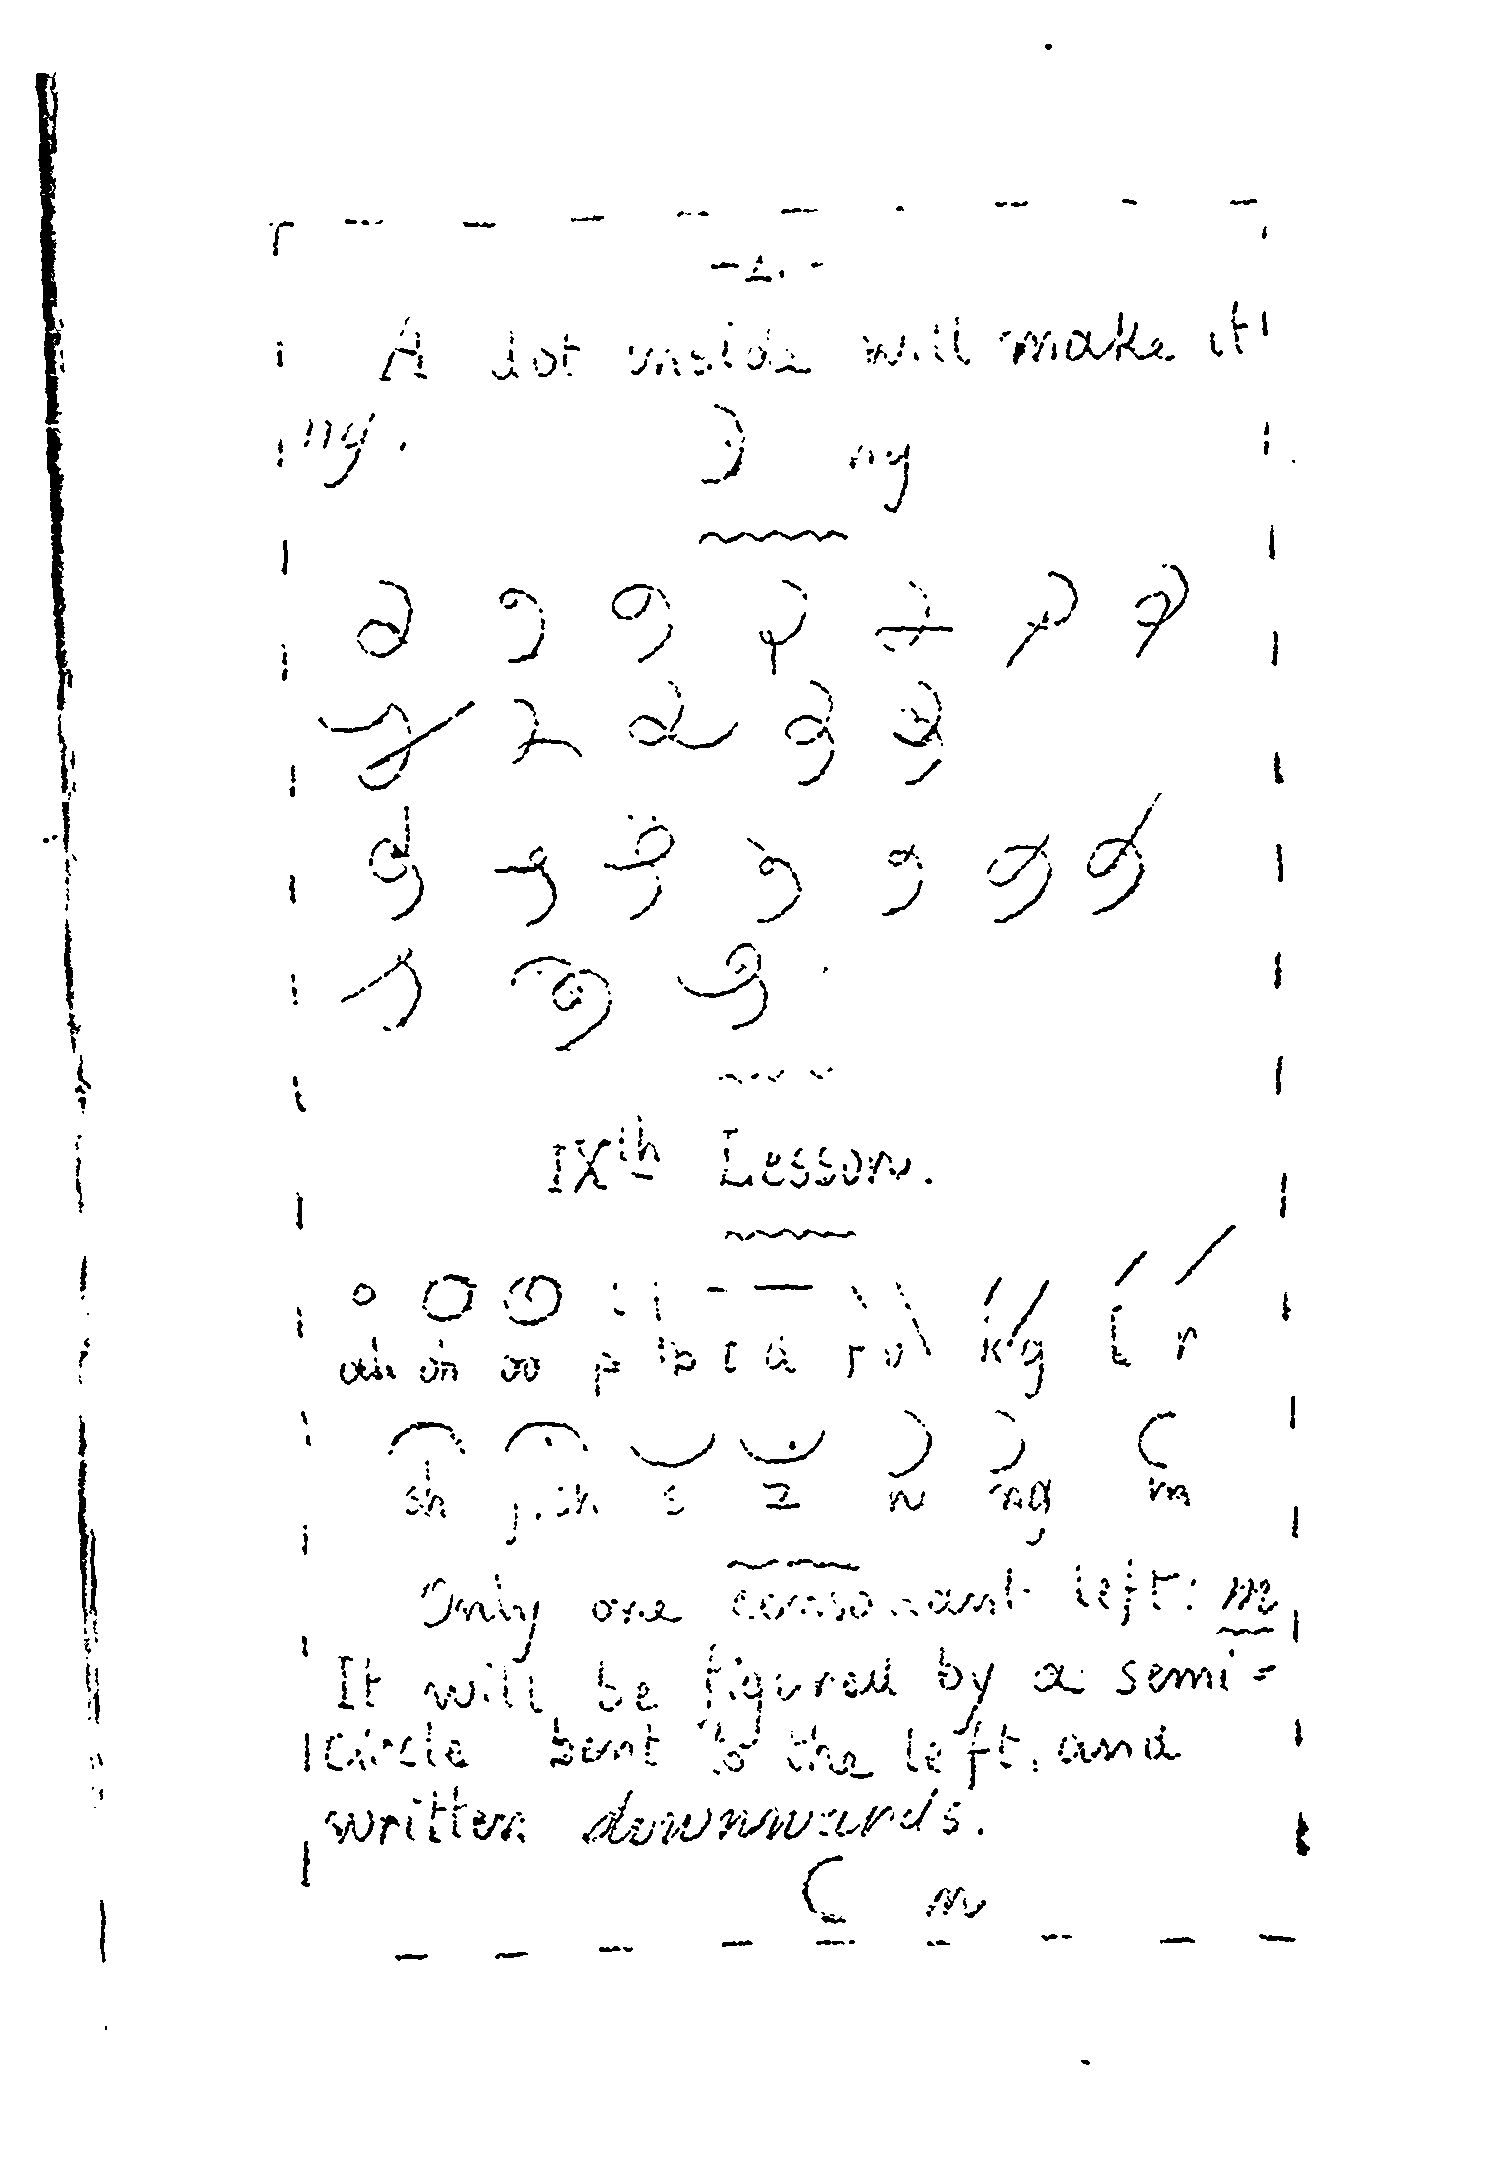 A dot inside will make it
ny. ny
IXth Lesson.
ah oh oo p b t d f v k g l r
sh j.ch s z n ng m
Only one consonant left: m
It will be figured by a semi=
circle bent to the left, and
written downwards.
m